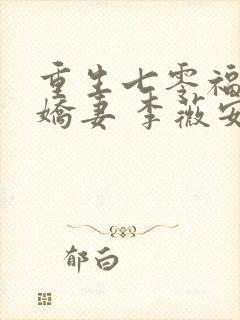 重生七零福
娇妻 李薇安
郁白